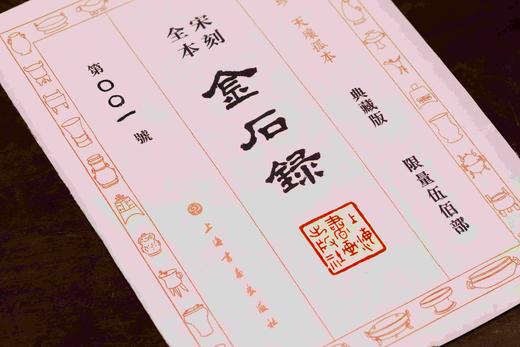 天壤孤本
典藏版
限量伍佰部
宋刻
全本
金石録
上海書畫出版社
第〇〇一號